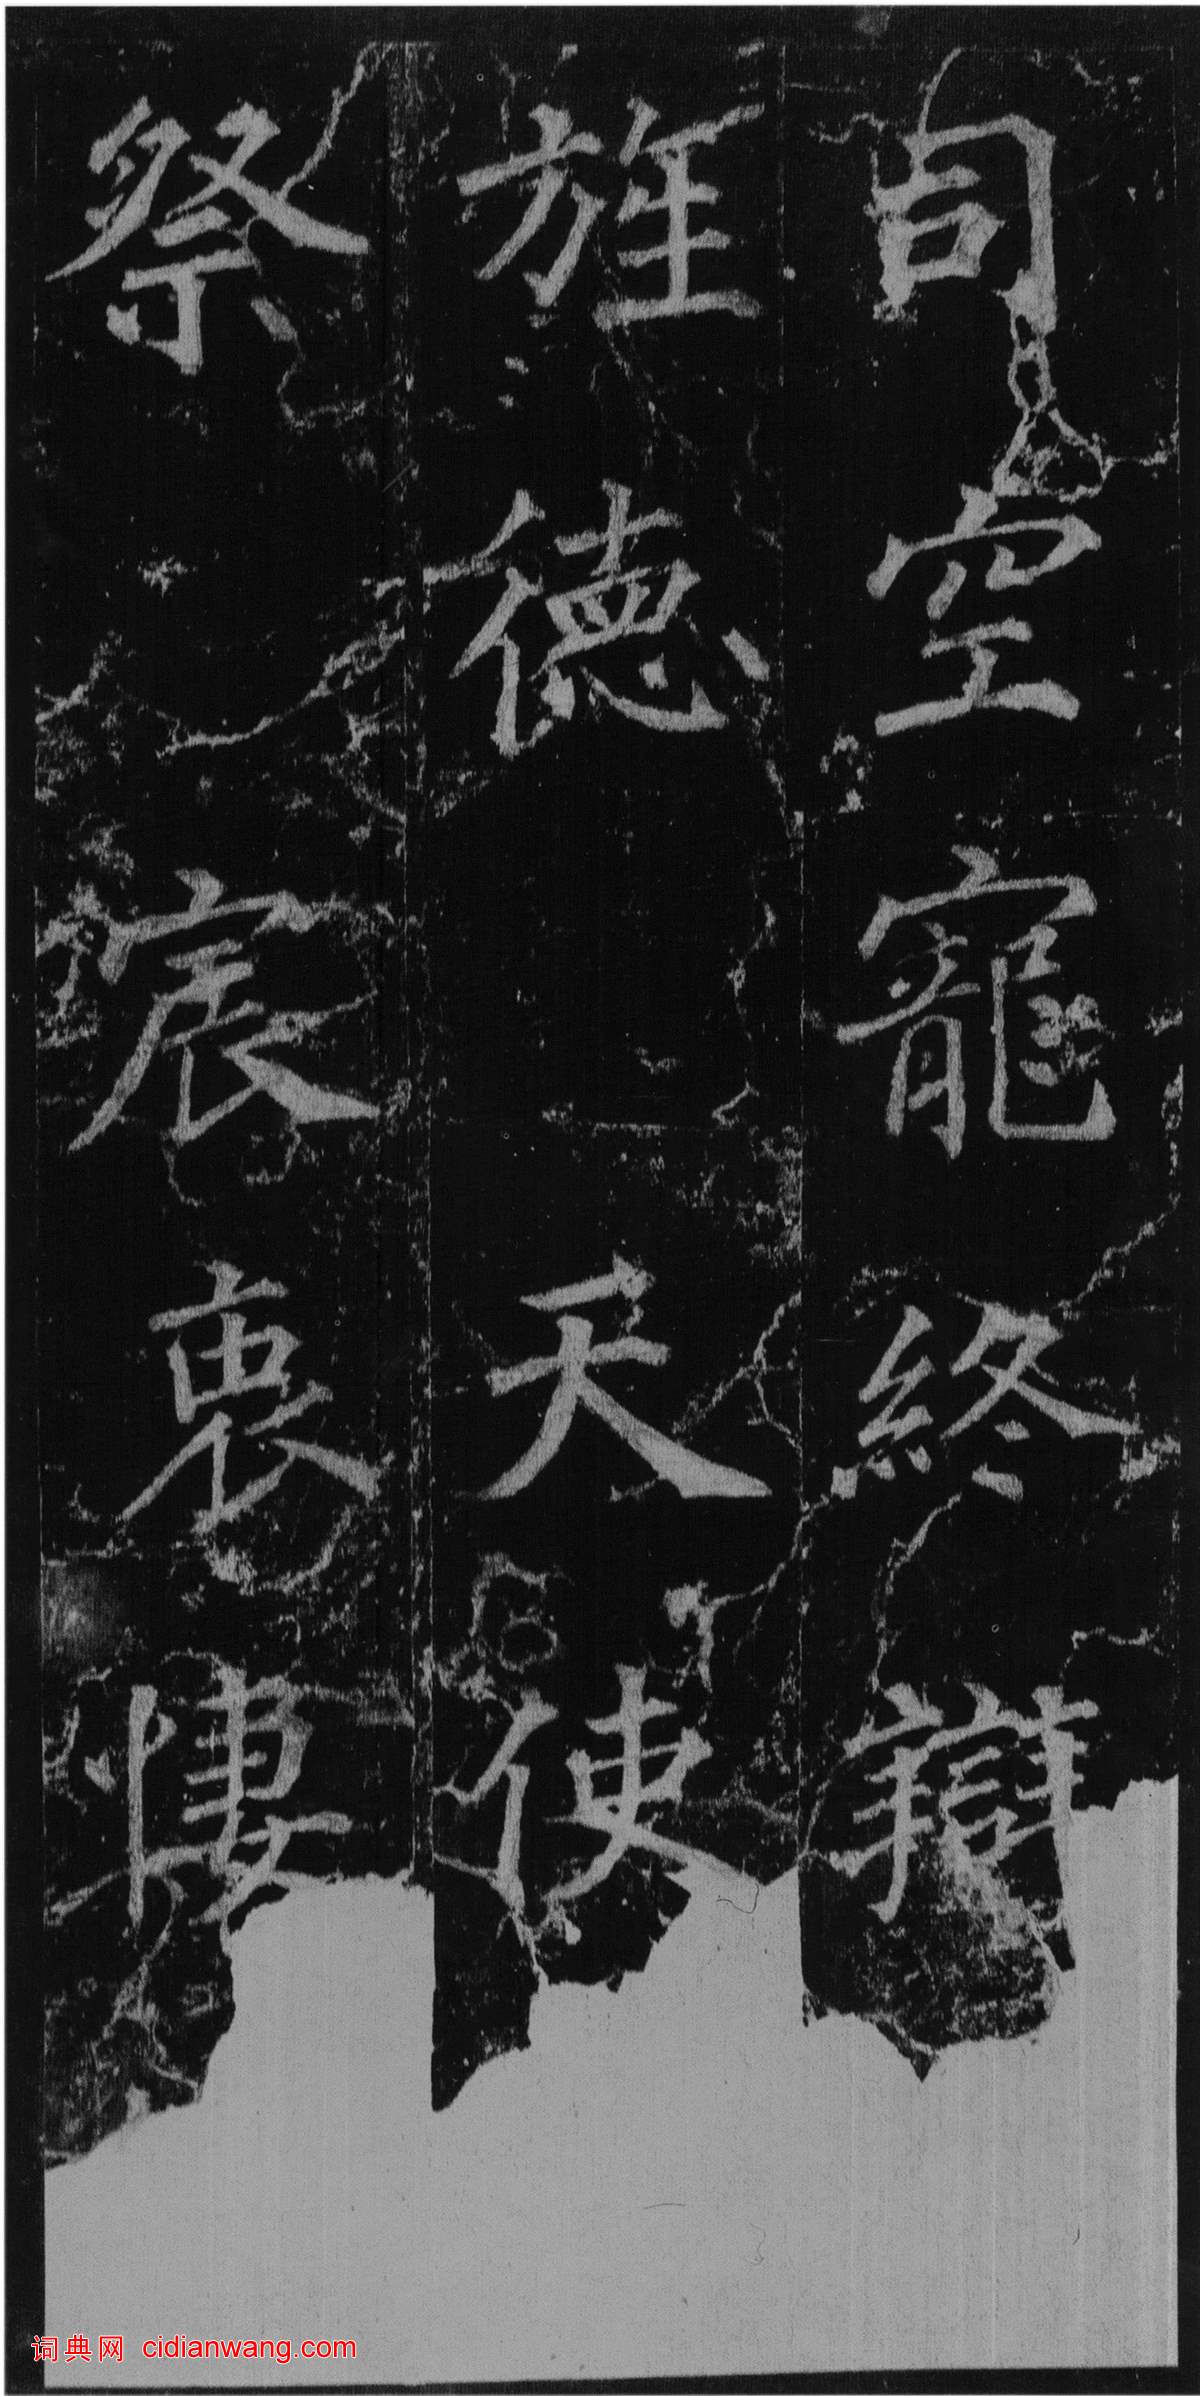 司空寵終辯
旌德天使
祭宸衷悽
词典网 cidianwang.com